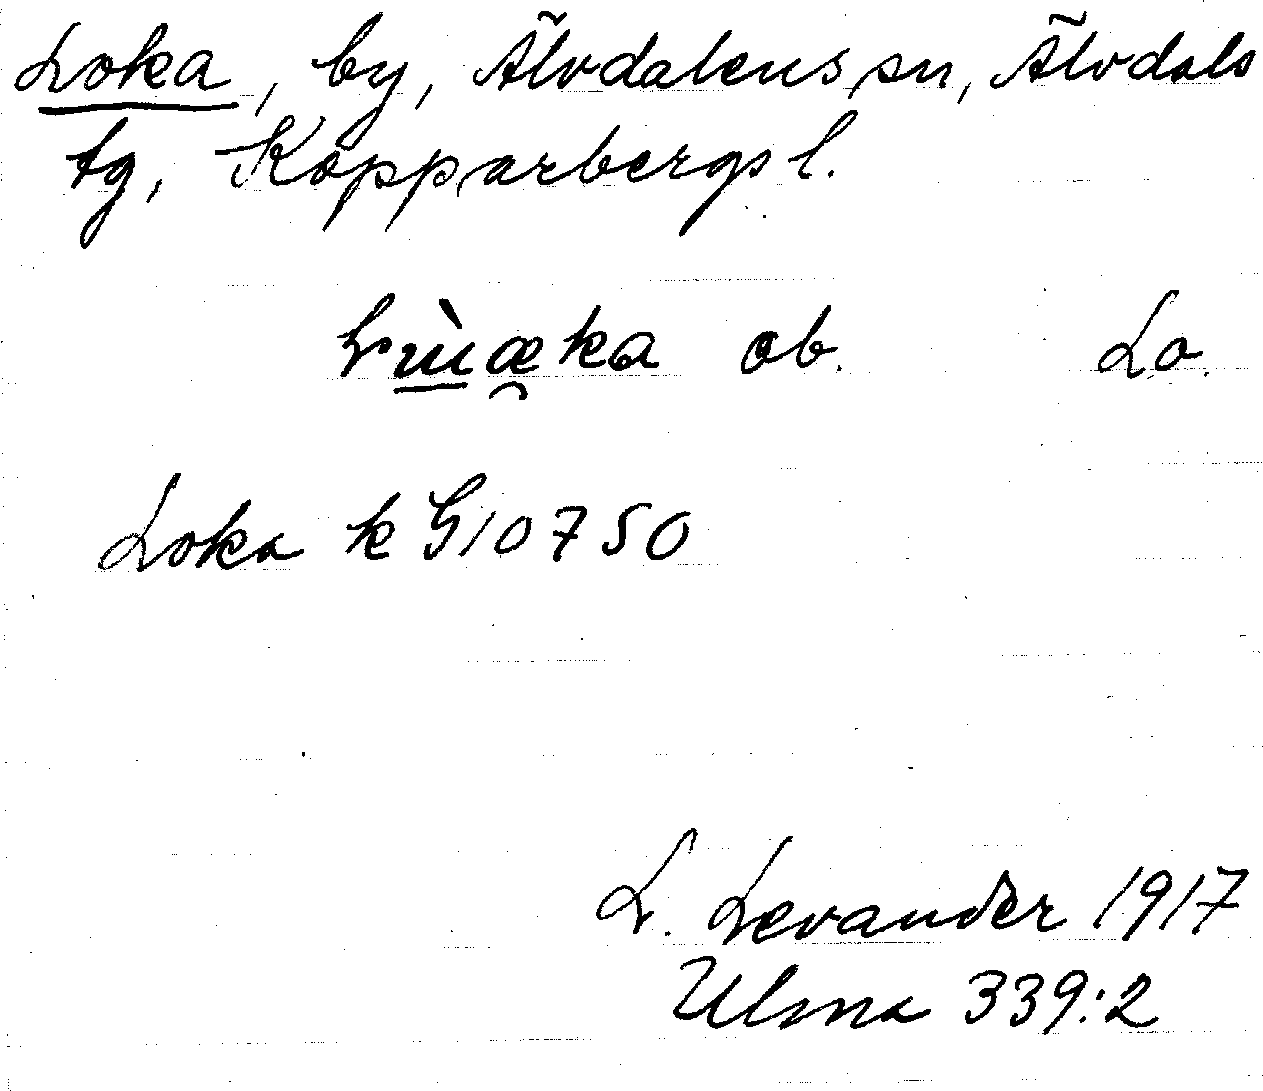 Loka, by, Älvdalens sn, Älvdals
tg, Kopparbergs l.
ob. Lo.
Loka k G10750
L. Levander 1917
Ulma 339:2